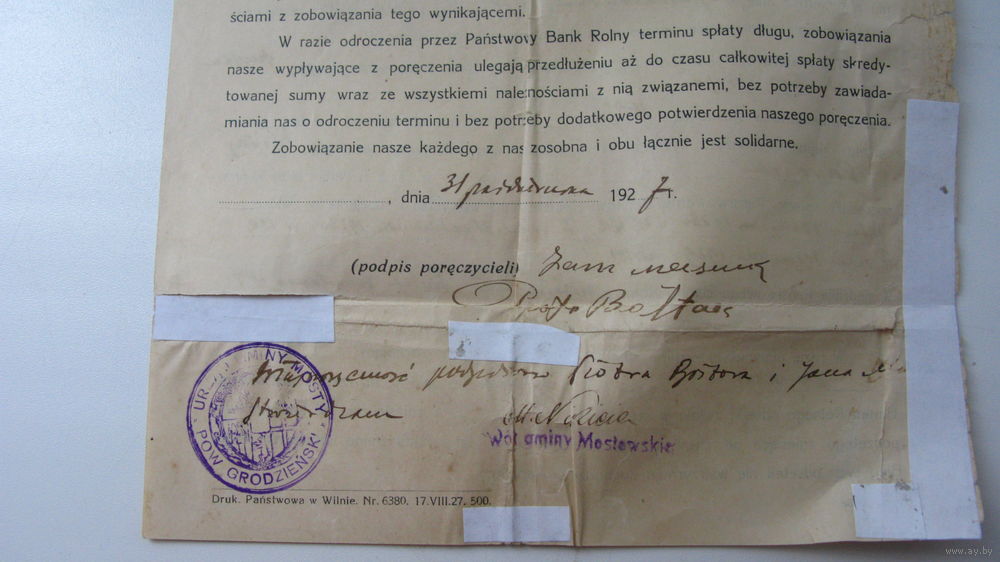 ściami z zobowiązania tego wynikającemi.
W razie odroczenia przez Państwowy Bank Rolny terminu spłaty długu, zobowiązania
nasze wypływające z poręczenia ulegają przedłużeniu aż do czasu całkowitej spłaty skredy-
towanej sumy wraz ze wszystkiemi należnościami z nią związanemi, bez potrzeby zawiada-
miania nas o odroczeniu terminu i bez potrzeby dodatkowego potwierdzenia naszego poręczenia.
Zobowiązanie nasze każdego z nas zosobna i obu łącznie jest solidarne.
, dnia 31 października 1927 r.
(podpis poręczycieli)
URZĄD GMINY MOSTY
POW GRODZIEŃSKI
Własnoręczność podpisów Piotra i Jana
stwierdzam
Wójt gminy Mostowskiej
Druk. Państwowa w Wilnie. Nr. 6380. 17.VIII.27. 500.
www.ay.by